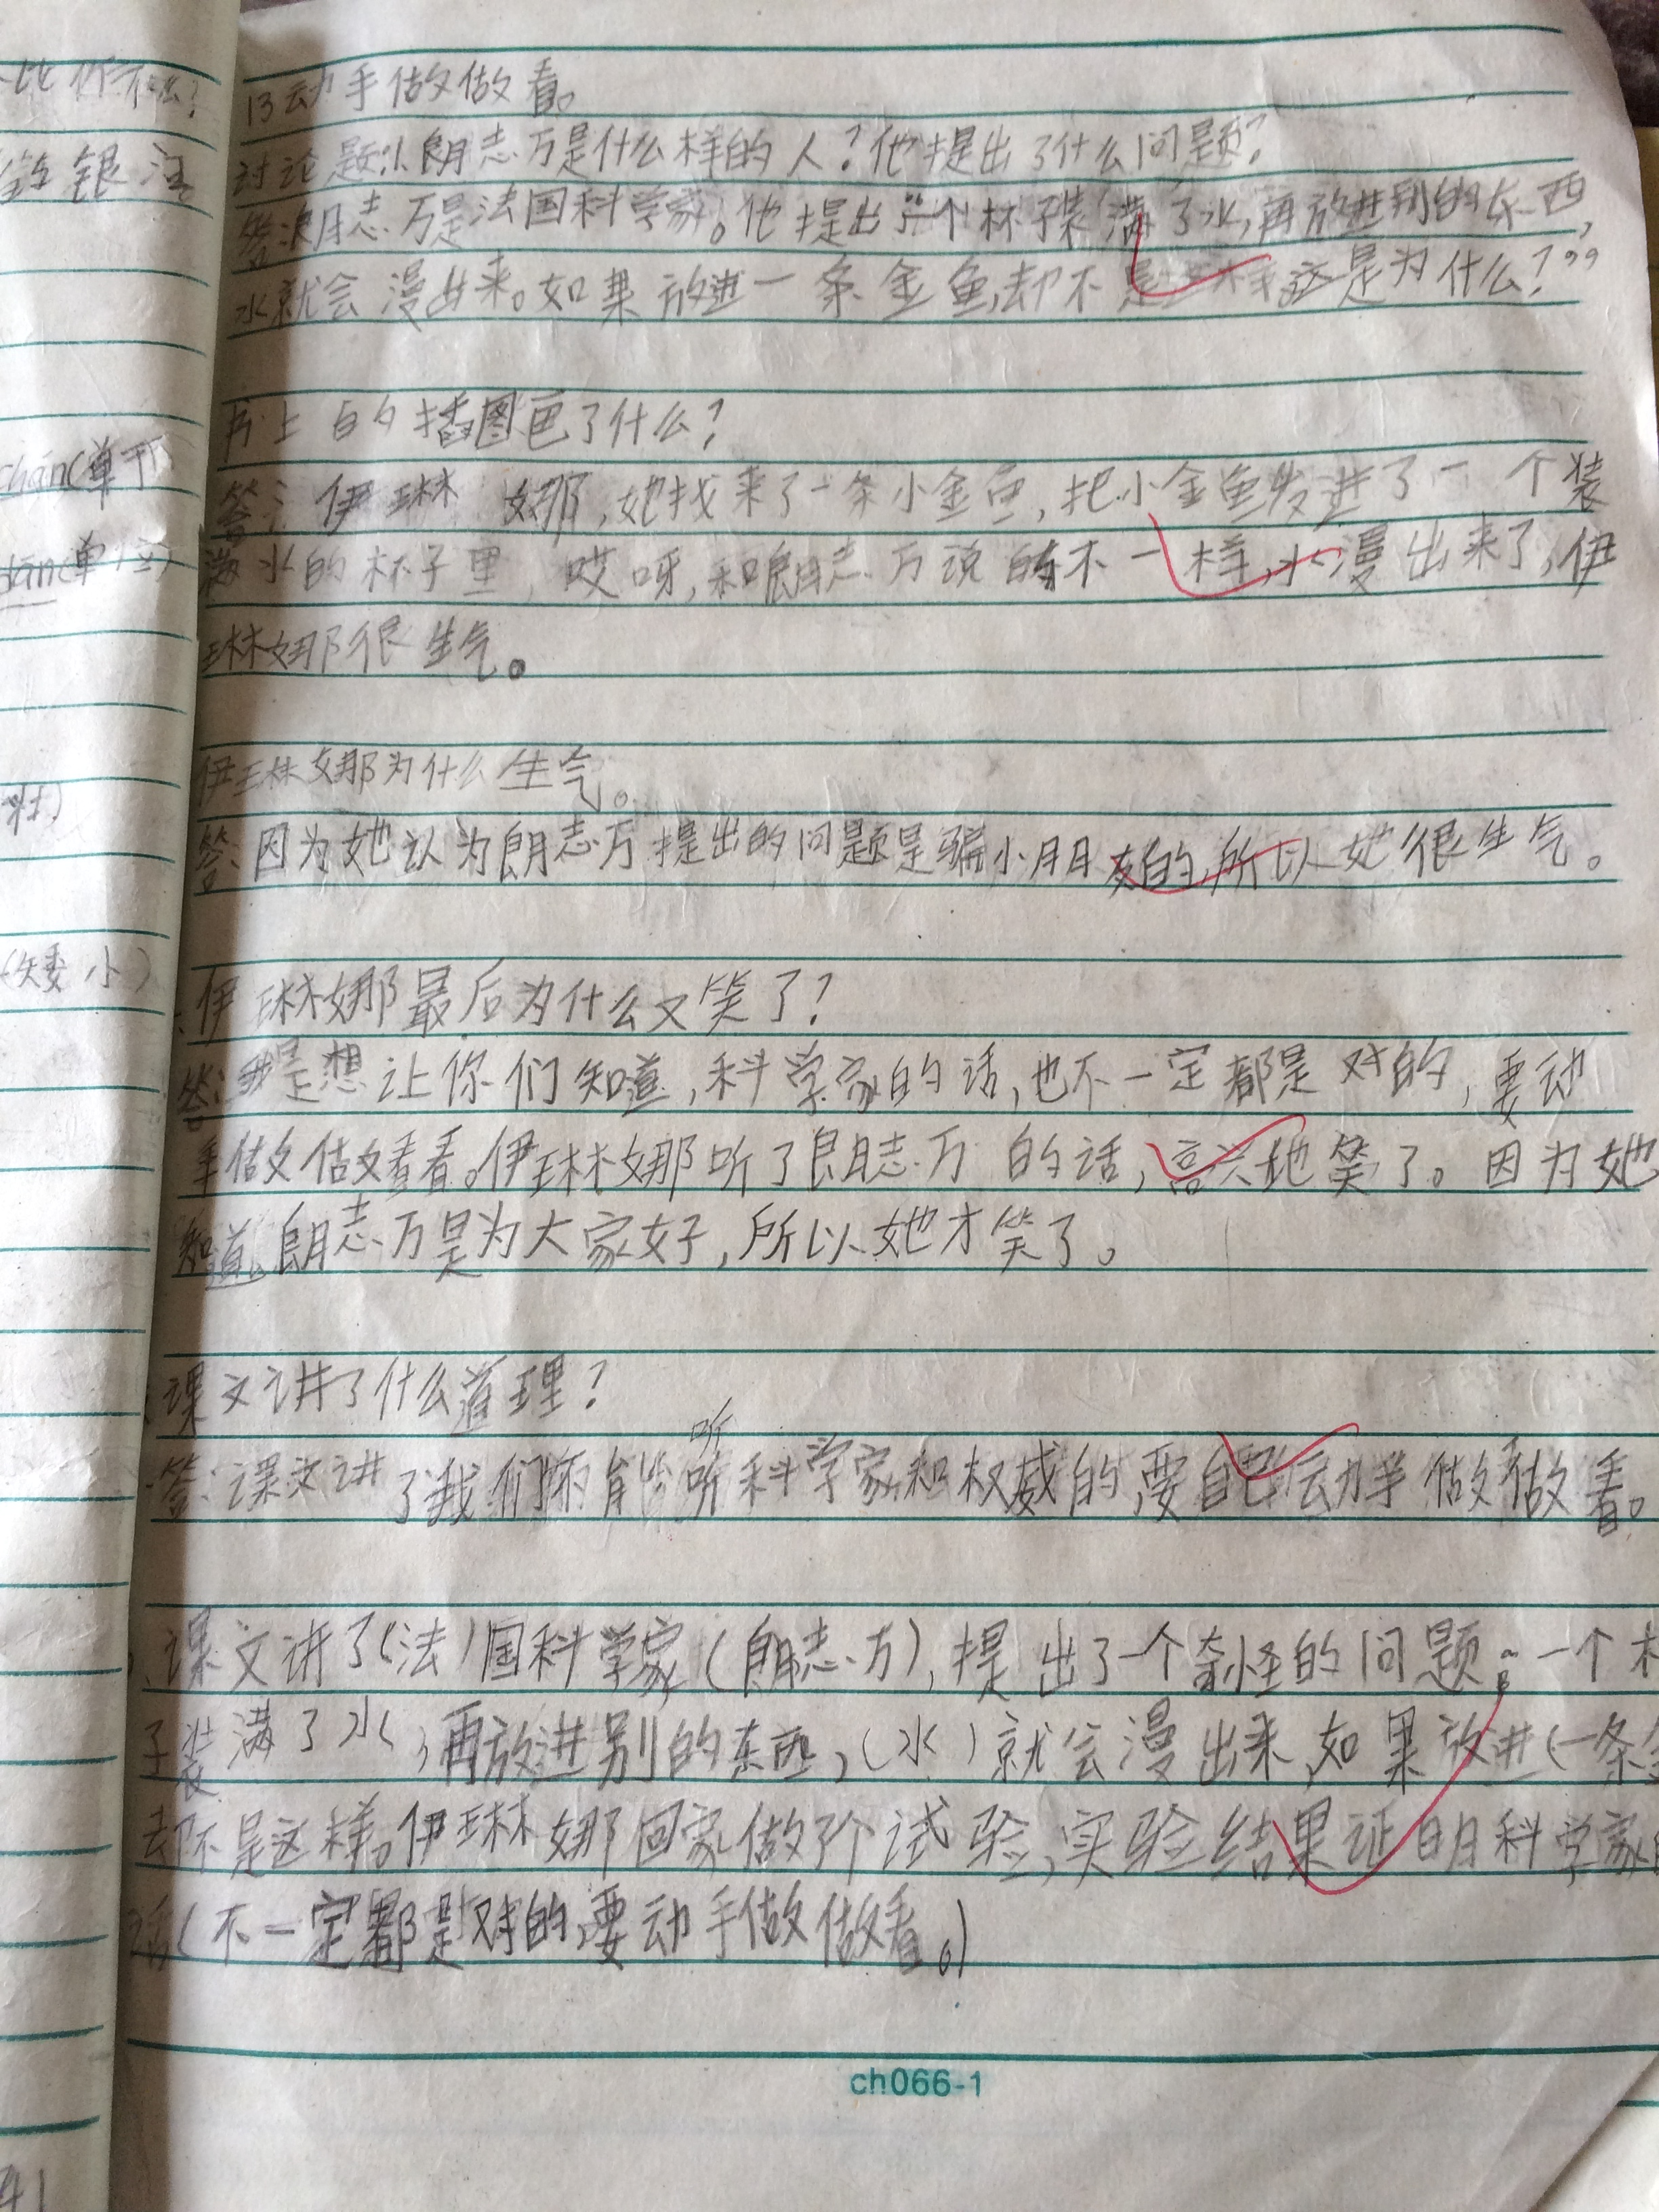 比作什么?
银河
chán(单于
dān(单位)
(矮小)
13动手做做看。
讨论题:1.朗志万是什么样的人?他提出了什么问题?
答:朗志万是法国科学家。他提出了“一个杯子装满了水,再放进别的东西,
水就会漫出来。如果放进一条金鱼,却不是这样,这是为什么?”
书上的插图画了什么?
答:伊琳娜,她找来了一条小金鱼,把小金鱼放进了一个装
满水的杯子里,哎呀,和朗志万说的不一样,水漫出来了,伊
琳娜很生气。
伊琳娜为什么生气。
答:因为她认为朗志万提出的问题是骗小朋友的,所以她很生气。
伊琳娜最后为什么又笑了?
答:我是想让你们知道,科学家的话,也不一定都是对的,要动
手做做看看。伊琳娜听了朗志万的话,高兴地笑了。因为她
知道朗志万是为大家好,所以她才笑了。
课文讲了什么道理?
听
答:课文讲了我们不能听科学家和权威的,要自己动手做做看。
课文讲了(法)国科学家(朗志万),提出了一个奇怪的问题:“一个杯
子装满了水,再放进别的东西,(水)就会漫出来,如果放进(一条金
却不是这样。伊琳娜回家做了个试验,实验结果证明科学家的
话(不一定都是对的,要动手做做看。)
ch066-1